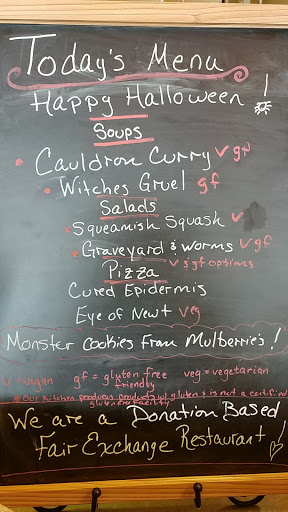 Today's Menu
Happy Halloween!
Soups
Cauldron Curry v gf
Witches Gruel gf
Salads
Squeamish Squash v
Graveyard & Worms v gf
Pizza v & gf options
Cured Epidermis
Eye of Newt veg
Monster Cookies From Mulberrie's!
v = vegan gf = gluten free friendly veg = vegetarian
* Our kitchen produces products w/ gluten & is not a certified
gluten free facility
We are a Donation Based
Fair Exchange Restaurant!